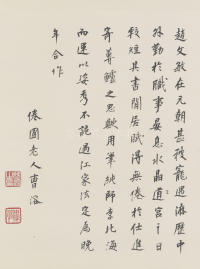 趙文敏在元朝甚被寵遇游歷中
外勤於職事晏息水晶道宮之日
較短其書閒居賦得無倦於仕進
寄尊鱸之思歟用筆純師李北海
而運以姿秀不詭過江家法定為晚
年合作
倦圃老人曹溶